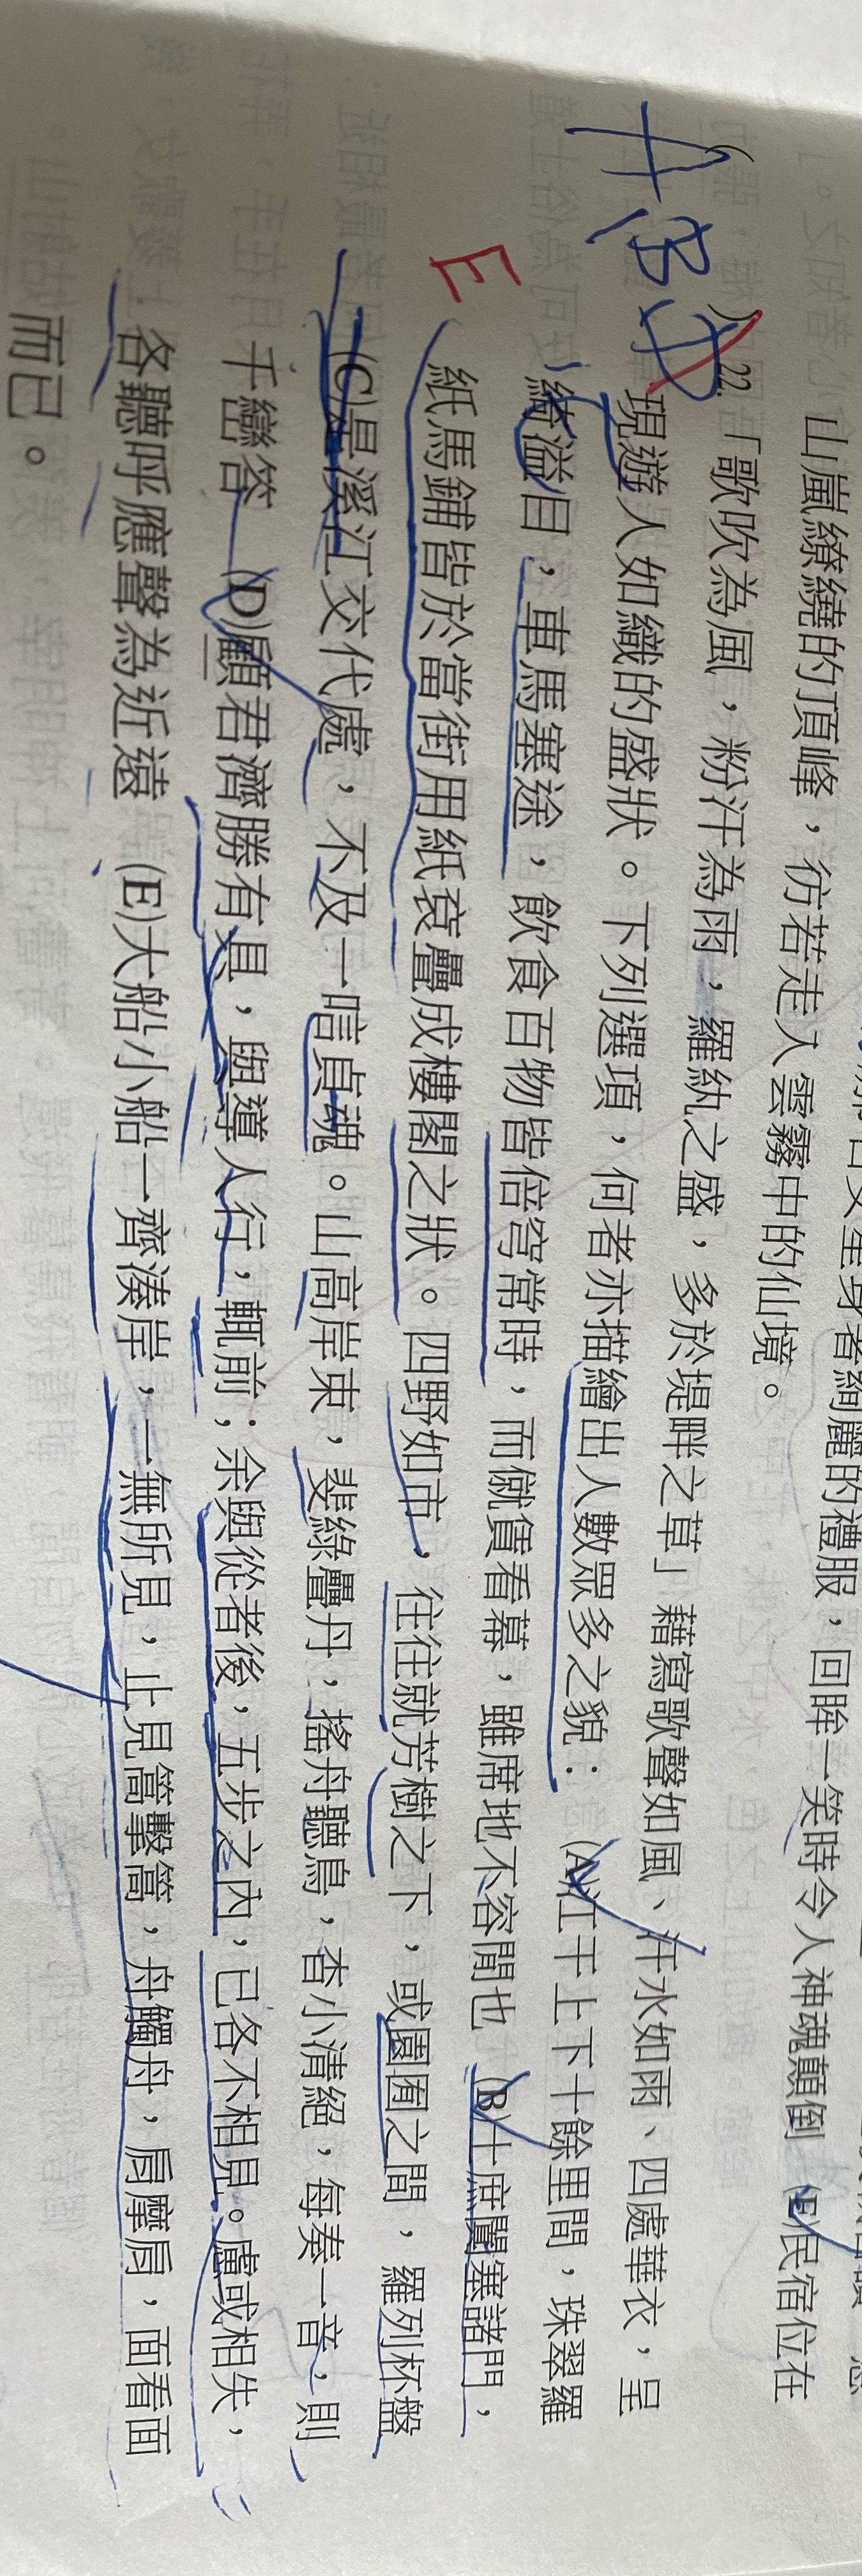 山嵐繚繞的頂峰，彷若走入雲霧中的仙境。
回眸一笑時令人神魂顛倒 (E)民宿位在
ABD
E
( ) 22.「歌吹為風，粉汗為雨，羅紈之盛，多於堤畔之草」藉寫歌聲如風、汗水如雨、四處華衣，呈
現遊人如織的盛狀。下列選項，何者亦描繪出人數眾多之貌： (A)江干上下十餘里間，珠翠羅
綺溢目，車馬塞途，飲食百物皆倍穹常時，而僦賃看幕，雖席地不容閒也 (B)士庶闐塞諸門，
紙馬鋪皆於當街用紙袞疊成樓閣之狀。四野如市，往往就芳樹之下，或園囿之間，羅列杯盤
(C)是溪江交代處，不及一唁貞魂。山高岸束，斐綠疊丹，搖舟聽鳥，杳小清絕，每奏一音，則
千巒答 (D)顧君濟勝有具，與導人行，輒前；余與從者後，五步之內，已各不相見。慮或相失，
各聽呼應聲為近遠 (E)大船小船一齊湊岸，一無所見，止見篙擊篙，舟觸舟，肩摩肩，面看面
而已。